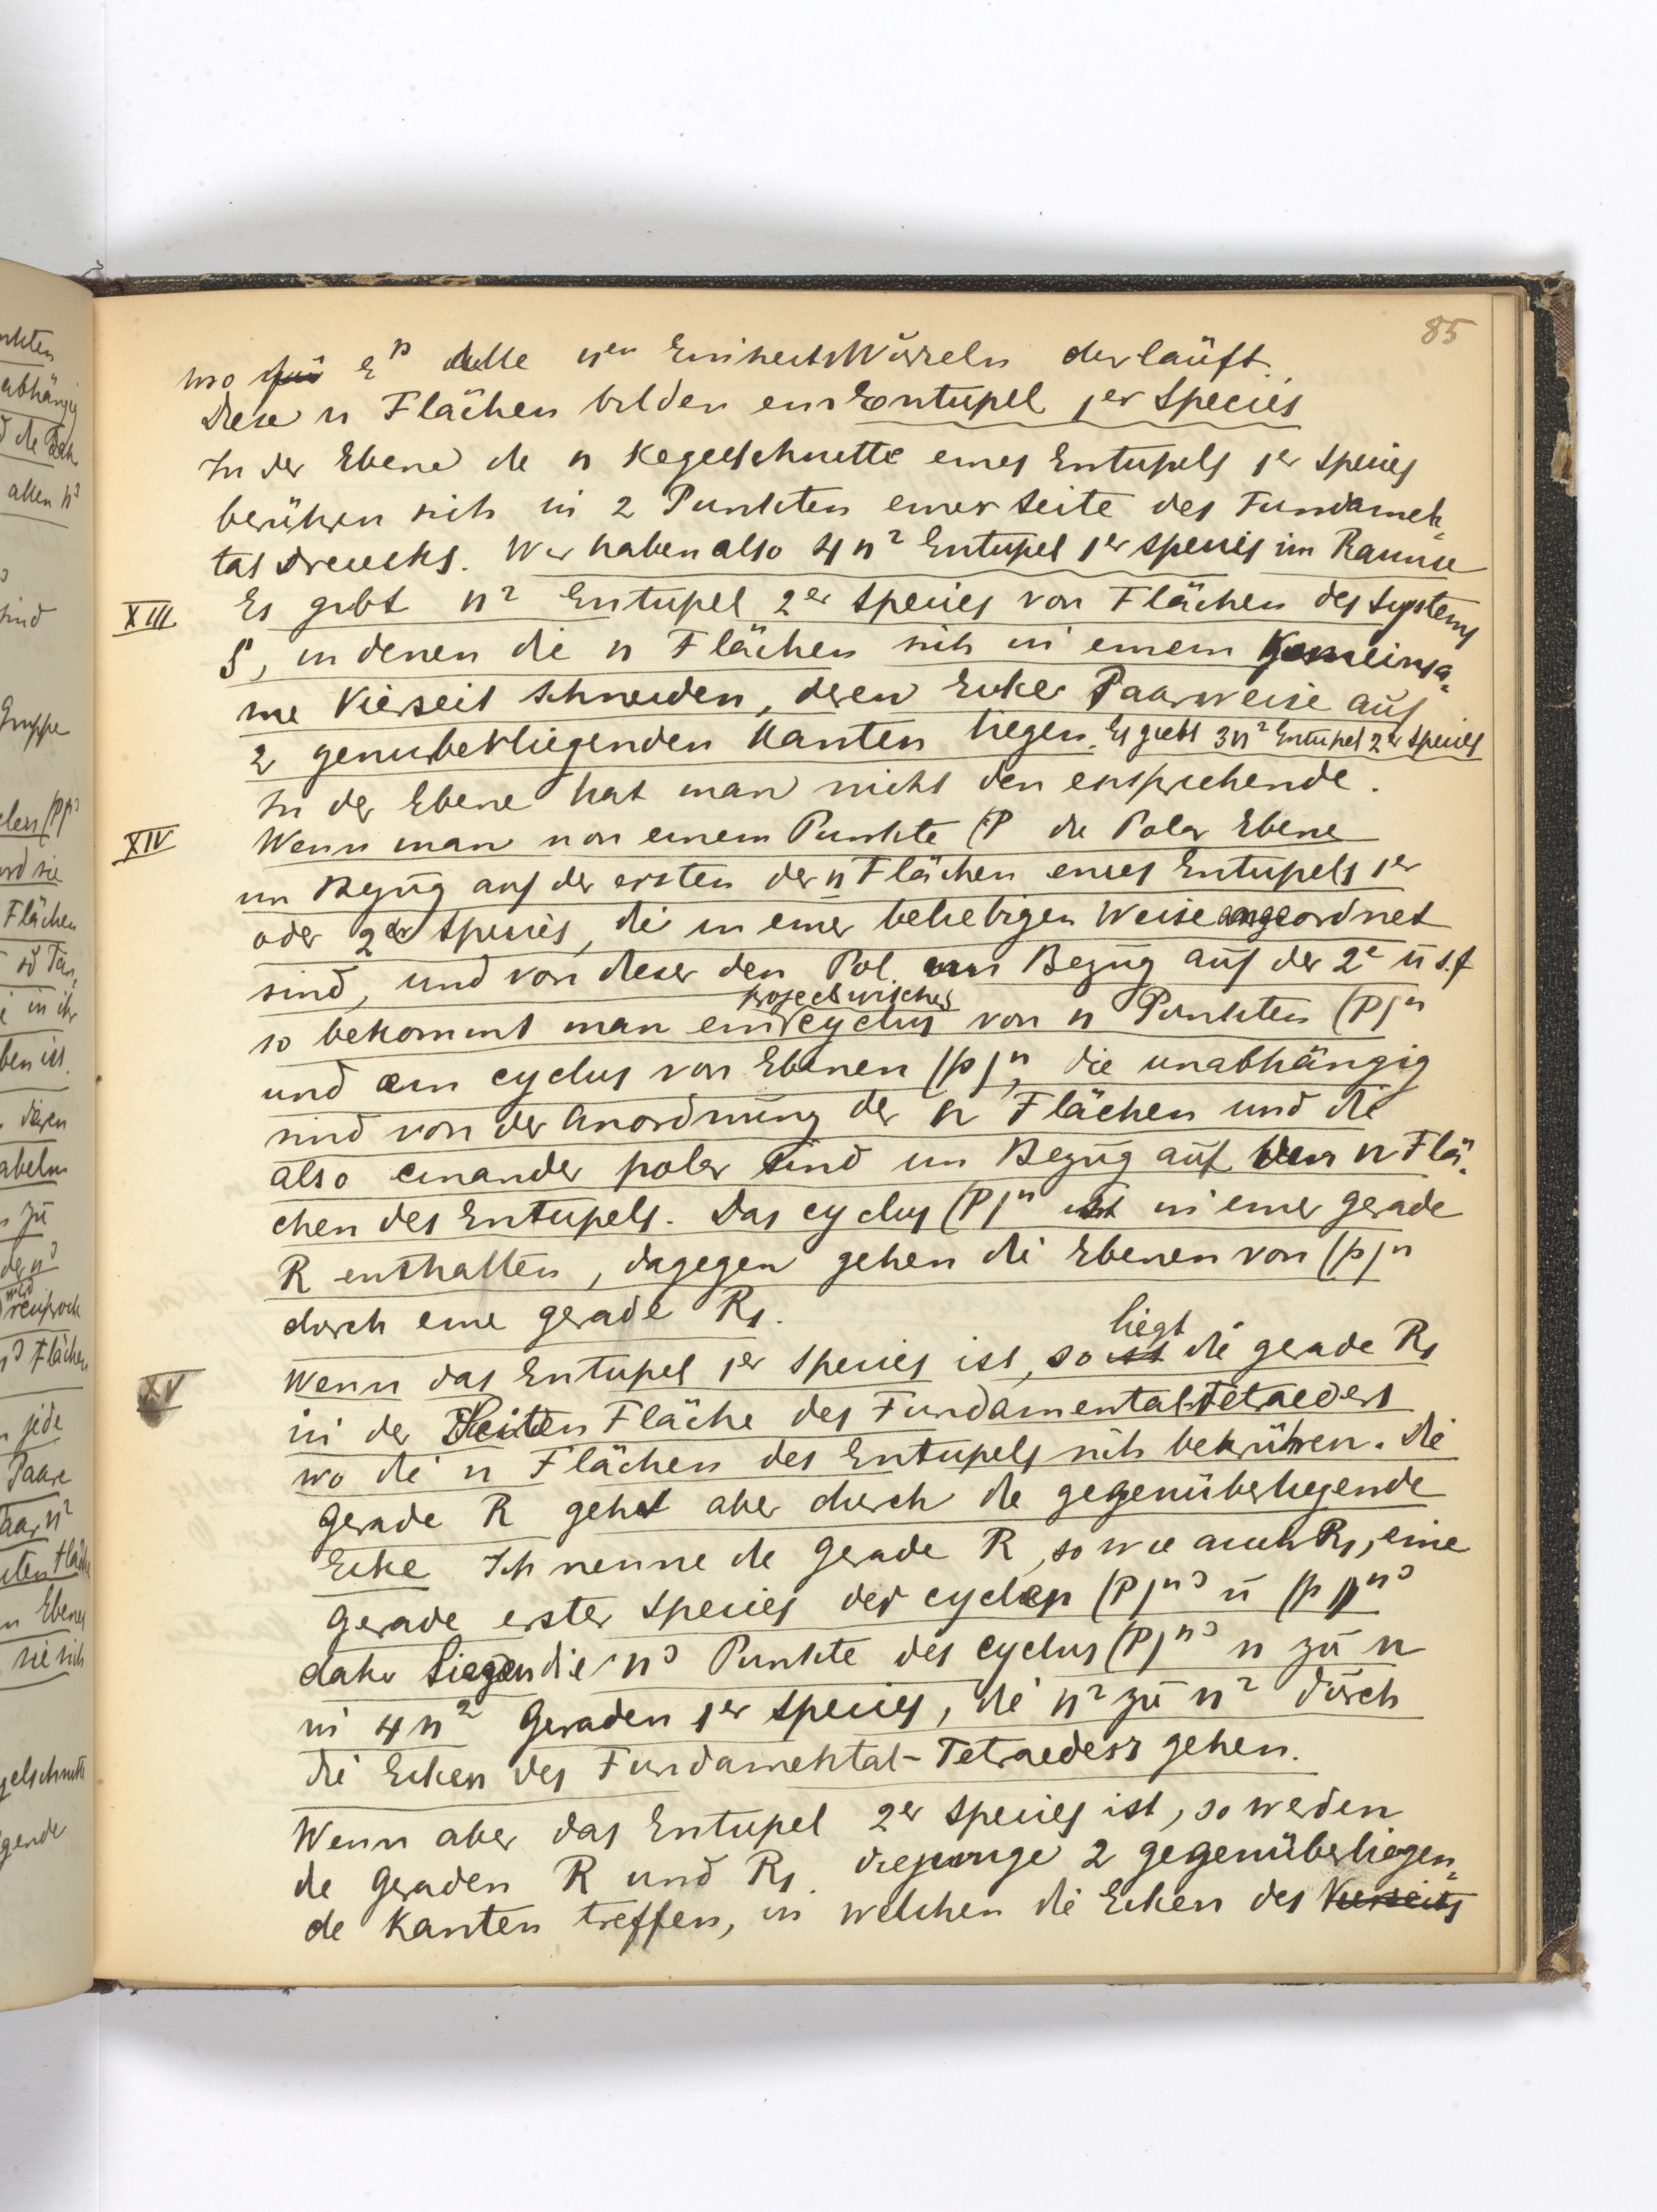 85
wo ε^p alle n^en EinheitsWürzeln derläuft.
Diese n Flächen bilden ein Entupel 1^er Species
In der Ebene die n Kegelschnitte eines Entupels 1^er Species
berühren sich in 2 Punkten einer Seite des Fundamen=
tal Dreiecks. Wir haben also 4n² Entupel 1^er Species im Raume
XIII Es gibt n² Entupel 2^er Species von Flächen des Systems
S, in denen die n Flächen sich in einem Gemeinsa=
me Vierseit schneiden, deren Ecke Paarweise auf
2 genuberliegenden Kanten liegen. Es giebt 3n² Entupel 2^er Species
In der Ebene hat man nicht den ensprechende.
XIV Wenn man von einem Punkte (P die Polar Ebene
im Bezug auf der ersten der n Flächen eines Entupels 1^er
oder 2^er Species, die in einer beliebigen Weise angeordnet
sind, und von dieser den Pol im Bezug auf der 2^e u s.f
projectivischer
so bekommt man ein cyclus von n Punkten (P)^n
und ein cyclus von Ebenen (p)^n, die unabhängig
sind von der Anordnung der n Flächen und die
also einander polar sind im Bezug auf den n Flä=
chen des Entupels. Das cyclus (P)^n ist in einer gerade
R enthalten, dagegen gehen die Ebenen von (p)^n
durch eine gerade R₁.
liegt
XV Wenn das Entupel 1^er Species ist, so ist die gerade R₁
in der Seiten Fläche des Fundamental-Tetraeders
wo die n Flächen des Entupels sich berühren. Die
Gerade R gehet aber durch die gegenüberliegende
Ecke Ich nenne die Gerade R, so wie auch R₁, eine
Gerade erster Species der cyclen (P)^n³ u (p)^n³
daher Liegen die n³ Punkte des cyclus (P)^n³ n zu n
in 4n² Geraden 1^er Species, die n² zu n² durch
die Ecken des Fundamental-Tetraeders gehen.
Wenn aber das Entupel 2^er Species ist, so werden
die Geraden R und R₁ diejenige 2 gegenüberliegen=
de Kanten treffen, in welchen die Ecken des Vierseits